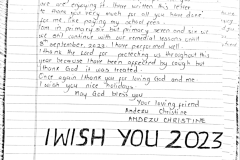 we are enjoying it. I have written this letter
to thank you very much for all you have done
for me like paying my school fees.
I am in primary six but primary seven and six we
we still continue with our remedial lessons until
8th September, 2023. I have performed well
I thank God for protecting us throughout this
year because I have been affected by cough but
thank God it was treated.
Once again I thank you for loving God and me
I wish you nice holidays.
May God bless you
Your loving friend
Andezu Christine
ANDEZU CHRISTINE
I WISH YOU 2023